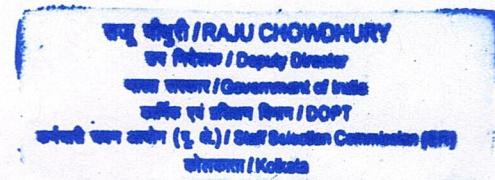 राजू चौधुरी / RAJU CHOWDHURY
उप निदेशक / Deputy Director
भारत सरकार / Government of India
कार्मिक एवं प्रशिक्षण विभाग / DOPT
कर्मचारी चयन आयोग (पू. क्षे.) / Staff Selection Commission (ER)
कोलकाता / Kolkata